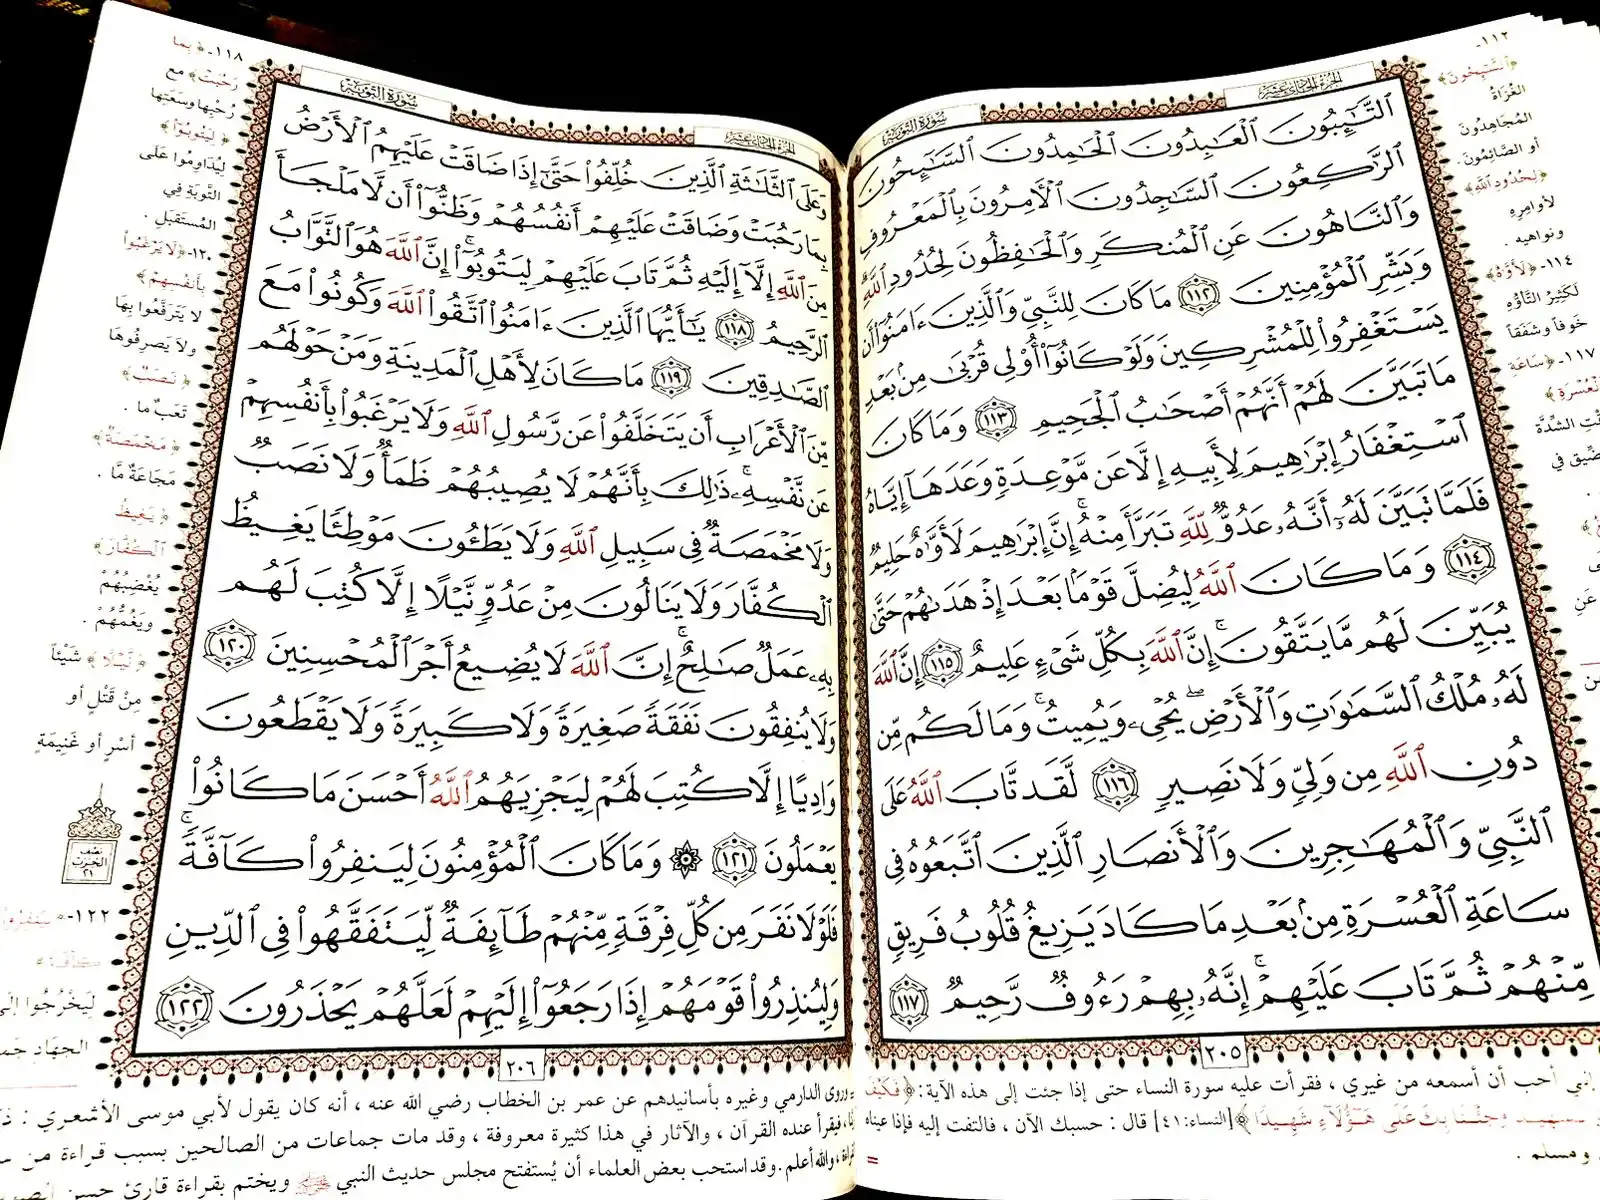 سورة التوبة
الجزء الحادي عشر
١١٢-
﴿السَّٰٓئِحُونَ﴾
الغُزَاةُ
المُجَاهِدُونَ
أو الصَّائِمُونَ.
﴿لِحُدُودِ اللَّهِ﴾
لأوامِرِهِ
ونواهيه .
١١٤- ﴿لَأَوَّٰهٌ﴾
لَكَثِيرُ التَّأَوُّهِ
خَوفاً وشَفَقاً
١١٧- ﴿سَاعَةِ
الْعُسْرَةِ﴾
الشِّدَّة
ٱلتَّٰٓئِبُونَ ٱلْعَٰبِدُونَ ٱلْحَٰمِدُونَ ٱلسَّٰٓئِحُونَ
ٱلرَّٰكِعُونَ ٱلسَّٰجِدُونَ ٱلْءَامِرُونَ بِٱلْمَعْرُوفِ
وَٱلنَّاهُونَ عَنِ ٱلْمُنكَرِ وَٱلْحَٰفِظُونَ لِحُدُودِ ٱللَّهِ
وَبَشِّرِ ٱلْمُؤْمِنِينَ ١١٢ مَا كَانَ لِلنَّبِىِّ وَٱلَّذِينَ ءَامَنُوٓا۟ أَن
يَسْتَغْفِرُوا۟ لِلْمُشْرِكِينَ وَلَوْ كَانُوٓا۟ أُو۟لِى قُرْبَىٰ مِنۢ بَعْدِ
مَا تَبَيَّنَ لَهُمْ أَنَّهُمْ أَصْحَٰبُ ٱلْجَحِيمِ ١١٣ وَمَا كَانَ
ٱسْتِغْفَارُ إِبْرَٰهِيمَ لِأَبِيهِ إِلَّا عَن مَّوْعِدَةٍ وَعَدَهَآ إِيَّاهُ
فَلَمَّا تَبَيَّنَ لَهُۥٓ أَنَّهُۥ عَدُوٌّ لِّلَّهِ تَبَرَّأَ مِنْهُ ۚ إِنَّ إِبْرَٰهِيمَ لَأَوَّٰهٌ حَلِيمٌ
١١٤ وَمَا كَانَ ٱللَّهُ لِيُضِلَّ قَوْمًۢا بَعْدَ إِذْ هَدَىٰهُمْ حَتَّىٰ
يُبَيِّنَ لَهُم مَّا يَتَّقُونَ ۚ إِنَّ ٱللَّهَ بِكُلِّ شَىْءٍ عَلِيمٌ ١١٥ إِنَّ ٱللَّهَ
لَهُۥ مُلْكُ ٱلسَّمَٰوَٰتِ وَٱلْأَرْضِ ۖ يُحْىِۦ وَيُمِيتُ ۚ وَمَا لَكُم مِّن
دُونِ ٱللَّهِ مِن وَلِىٍّ وَلَا نَصِيرٍ ١١٦ لَّقَد تَّابَ ٱللَّهُ عَلَى
ٱلنَّبِىِّ وَٱلْمُهَٰجِرِينَ وَٱلْأَنصَارِ ٱلَّذِينَ ٱتَّبَعُوهُ فِى
سَاعَةِ ٱلْعُسْرَةِ مِنۢ بَعْدِ مَا كَادَ يَزِيغُ قُلُوبُ فَرِيقٍ
مِّنْهُمْ ثُمَّ تَابَ عَلَيْهِمْ ۚ إِنَّهُۥ بِهِمْ رَءُوفٌ رَّحِيمٌ ١١٧
٢٠٥
أحب أن أسمعه من غيري ، فقرأت عليه سورة النساء حتى إذا جئت إلى هذه الآية : ﴿فَكَيْفَ
وَجِئْنَا بِكَ عَلَىٰ هَٰٓؤُلَآءِ شَهِيدًا﴾ [النساء:٤١] قال : حسبك الآن ، فالتفت إليه فإذا عيناه
ومسلم .
=
سورة التوبة
الجزء الحادي عشر
وَعَلَى ٱلثَّلَٰثَةِ ٱلَّذِينَ خُلِّفُوا۟ حَتَّىٰٓ إِذَا ضَاقَتْ عَلَيْهِمُ ٱلْأَرْضُ
بِمَا رَحُبَتْ وَضَاقَتْ عَلَيْهِمْ أَنفُسُهُمْ وَظَنُّوٓا۟ أَن لَّا مَلْجَأَ
مِنَ ٱللَّهِ إِلَّآ إِلَيْهِ ثُمَّ تَابَ عَلَيْهِمْ لِيَتُوبُوٓا۟ ۚ إِنَّ ٱللَّهَ هُوَ ٱلتَّوَّابُ
ٱلرَّحِيمُ ١١٨ يَٰٓأَيُّهَا ٱلَّذِينَ ءَامَنُوا۟ ٱتَّقُوا۟ ٱللَّهَ وَكُونُوا۟ مَعَ
ٱلصَّٰدِقِينَ ١١٩ مَا كَانَ لِأَهْلِ ٱلْمَدِينَةِ وَمَنْ حَوْلَهُم
مِّنَ ٱلْأَعْرَابِ أَن يَتَخَلَّفُوا۟ عَن رَّسُولِ ٱللَّهِ وَلَا يَرْغَبُوا۟ بِأَنفُسِهِمْ
عَن نَّفْسِهِۦ ۚ ذَٰلِكَ بِأَنَّهُمْ لَا يُصِيبُهُمْ ظَمَأٌ وَلَا نَصَبٌ
وَلَا مَخْمَصَةٌ فِى سَبِيلِ ٱللَّهِ وَلَا يَطَـُٔونَ مَوْطِئًا يَغِيظُ
ٱلْكُفَّارَ وَلَا يَنَالُونَ مِنْ عَدُوٍّ نَّيْلًا إِلَّا كُتِبَ لَهُم
بِهِۦ عَمَلٌ صَٰلِحٌ ۚ إِنَّ ٱللَّهَ لَا يُضِيعُ أَجْرَ ٱلْمُحْسِنِينَ ١٢٠
وَلَا يُنفِقُونَ نَفَقَةً صَغِيرَةً وَلَا كَبِيرَةً وَلَا يَقْطَعُونَ
وَادِيًا إِلَّا كُتِبَ لَهُمْ لِيَجْزِيَهُمُ ٱللَّهُ أَحْسَنَ مَا كَانُوا۟
يَعْمَلُونَ ١٢١ ۞ وَمَا كَانَ ٱلْمُؤْمِنُونَ لِيَنفِرُوا۟ كَآفَّةً ۚ
فَلَوْلَا نَفَرَ مِن كُلِّ فِرْقَةٍ مِّنْهُمْ طَآئِفَةٌ لِّيَتَفَقَّهُوا۟ فِى ٱلدِّينِ
وَلِيُنذِرُوا۟ قَوْمَهُمْ إِذَا رَجَعُوٓا۟ إِلَيْهِمْ لَعَلَّهُمْ يَحْذَرُونَ ١٢٢
٢٠٦
١١٨- ﴿بِمَا
رَحُبَتْ﴾ مع
رُحْبِها وسَعَتِها
﴿لِيَتُوبُوٓا۟﴾
لِيُدَاوِمُوا عَلَى
التَّوبَةِ فِي
المُستَقبَلِ .
١٢٠- ﴿لَا يَرْغَبُوا۟
بِأَنفُسِهِمْ﴾
لا يَتَرَفَّعُوا بِهَا
ولَا يَصرِفُوهَا
﴿نَصَبٌ﴾
تَعَبٌ ما .
﴿مَخْمَصَةٌ﴾
مَجَاعَةٌ مَّا .
﴿يَغِيظُ
ٱلْكُفَّارَ﴾
يُغْضِبُهُمْ
ويَغُمُّهُمْ .
﴿نَّيْلًا﴾ شَيْئاً
مِنْ قَتْلٍ أو
أسْرٍ أو غَنِيمَةٍ
نصف
الحزب
٢١
١٢٢- ﴿لِيَنفِرُوا۟
كَآفَّةً﴾
لِيَخْرُجُوا إلَى
الجهَادِ
وروى الدارمي وغيره بأسانيدهم عن عمر بن الخطاب رضي الله عنه ، أنه كان يقول لأبي موسى الأشعري :
فيقرأ عنده القرآن ، والآثار في هذا كثيرة معروفة ، وقد مات جماعات من الصالحين بسبب قراءة من
والله أعلم . وقد استحب بعض العلماء أن يُستفتح مجلس حديث النبي ﷺ ويختم بقراءة قارئ حسن